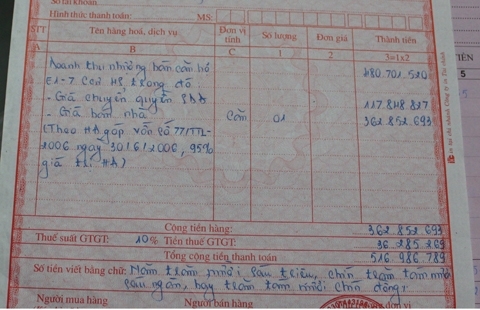 Số tài khoản
Hình thức thanh toán: MS:
STT Tên hàng hoá, dịch vụ Đơn vị tính Số lượng Đơn giá Thành tiền
A B C 1 2 3=1x2
Doanh thu nhượng bán căn hộ 480.701.520
E1-7 Con trong đó:
- Giá chuyển quyền SDĐ 117.848.827
- Giá bán nhà Căn 01 362.852.693
(Theo HĐ góp vốn số 77/TL-
2006 ngày 30/6/2006, 95%
giá trị HĐ)
Cộng tiền hàng: 362 852 693
Thuế suất GTGT: 10% Tiền thuế GTGT: 36.285.269
Tổng cộng tiền thanh toán 516.986.789
Số tiền viết bằng chữ: Năm trăm mười sáu triệu, chín trăm tám mươi
sáu ngàn, bảy trăm tám mươi chín đồng
Người mua hàng Người bán hàng đơn vị
TIỀN
5
5